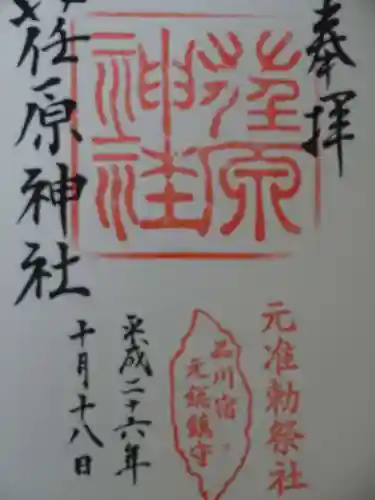 奉拝
荏原
神社
荏原神社
元准勅祭社
品川宿
元鎮守
平成二十六年
十月十八日